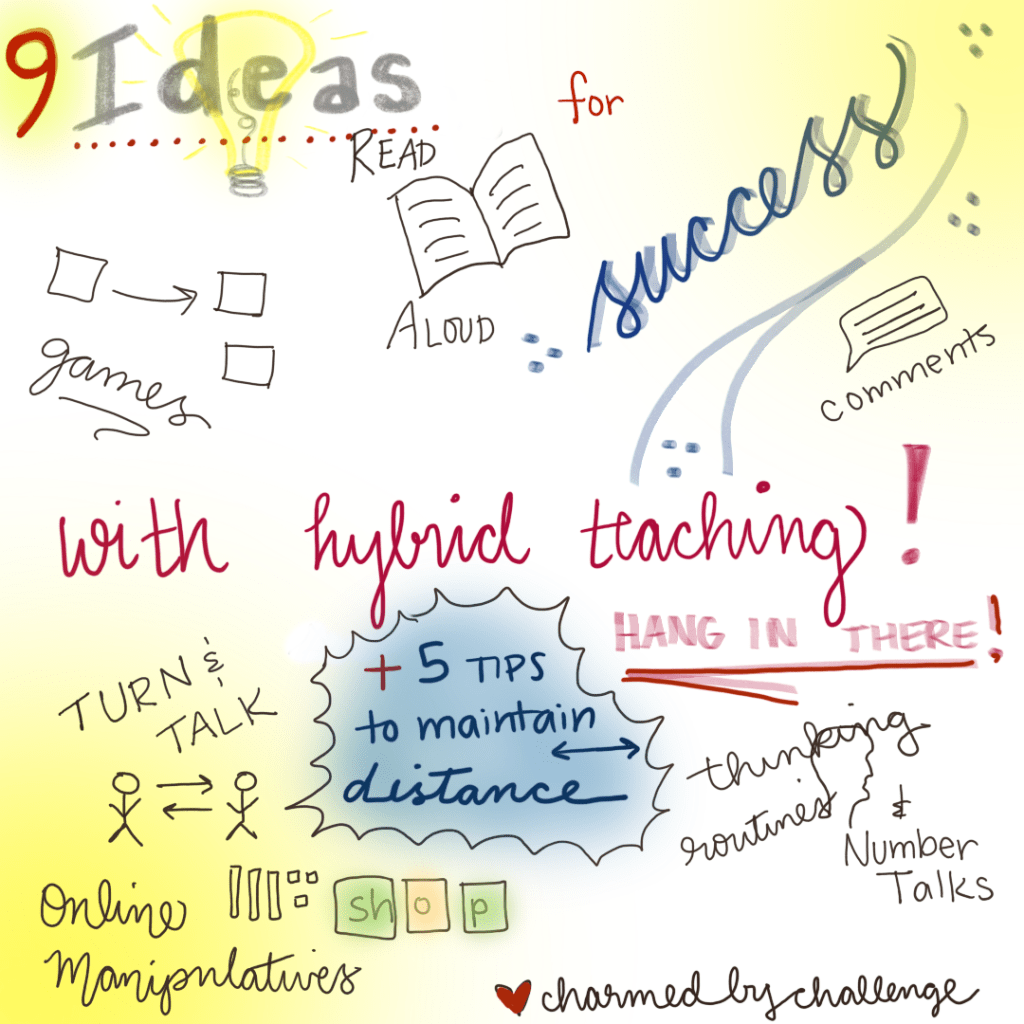 9 Ideas
for
success
READ
ALOUD
games
comments
with hybrid teaching!
HANG IN THERE!
+ 5 TIPS
to maintain
distance
TURN &
TALK
thinking
routines
&
Number
Talks
Online
Manipulatives
shop
charmed by challenge